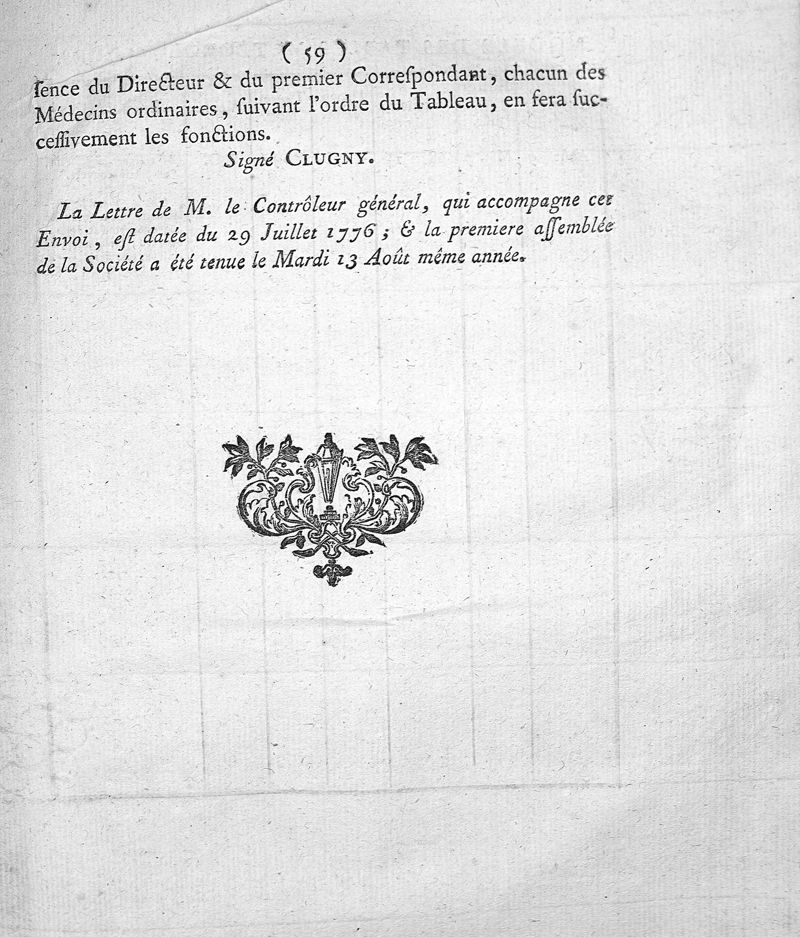 ( 59 )
ſence du Directeur & du premier Correſpondant, chacun des
Médecins ordinaires, ſuivant l'ordre du Tableau, en fera ſuc-
ceſſivement les fonctions.
Signé CLUGNY.
La Lettre de M. le Contrôleur général, qui accompagne cet
Envoi, eſt datée du 29 Juillet 1776; & la premiere aſſemblée
de la Société a été tenue le Mardi 13 Août même année.